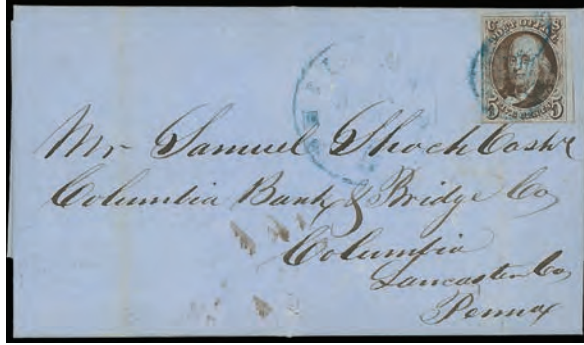 POST OFFICE
5 FIVE CENTS 5
Mr Samuel Shoch Cashr
Columbia Bank & Bridge Co
Columbia
Lancaster Co
Penna